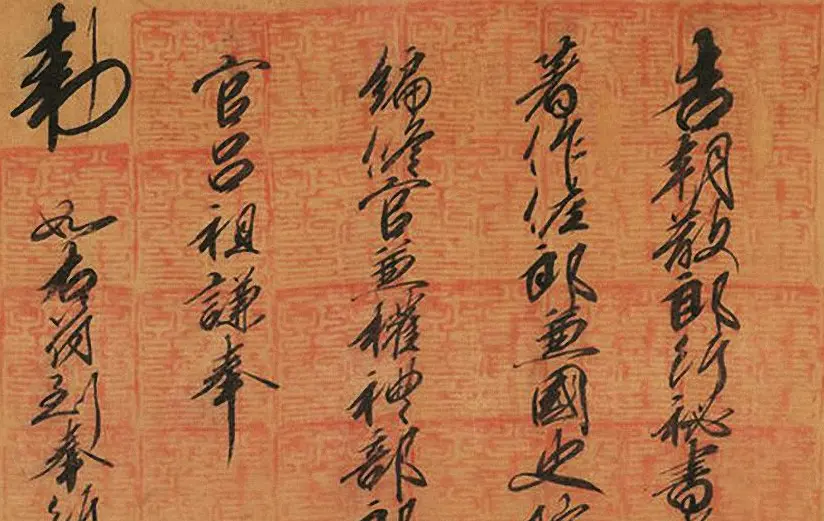 告朝散郎行秘書
著作佐郎兼國史
編修官兼權禮部
官呂祖謙奉
勅
如右符到奉